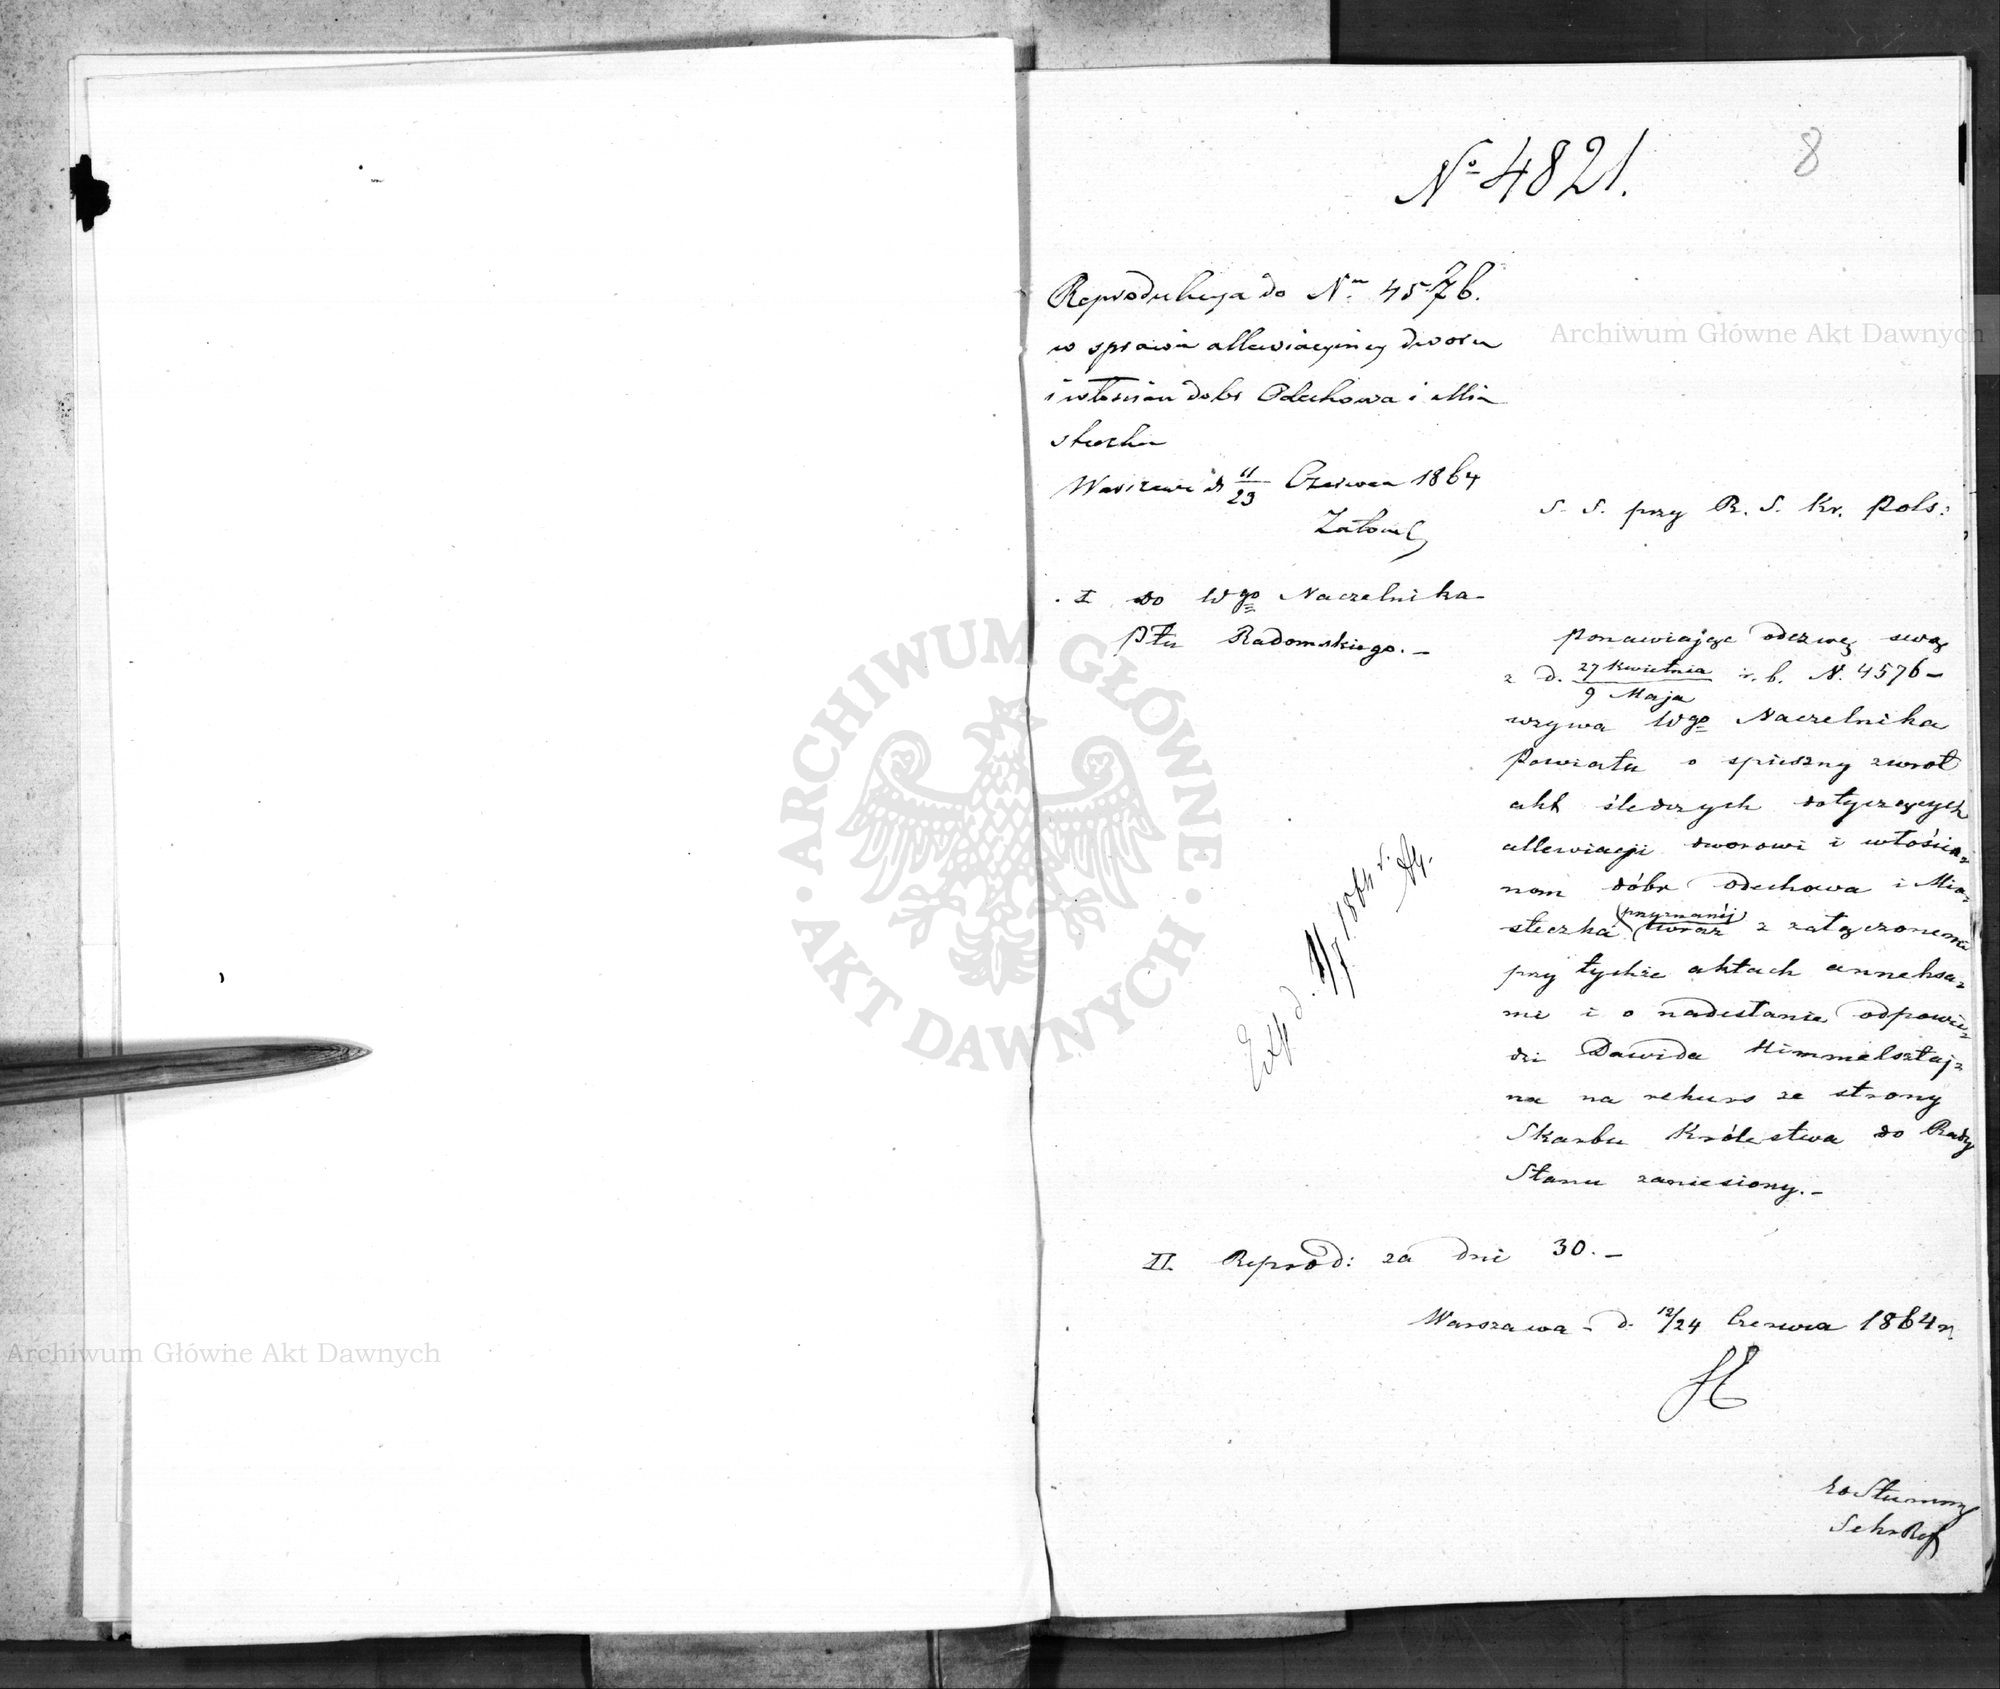 8
№ 4821.
Reprodukcya do Nru 4576.
w sprawie allewiacyjnej dworu
i włościan dóbr Odechowa i Mia
steczka
Warszawa d 11/23 Czerwca 1864
S. S. przy R. S. Kr. Pols:
I do Wgo Naczelnika
Ptu Radomskiego. –
ponawiając odezwę swą
z d. 27 Kwietnia / 9 Maja r. b. N. 4576 –
wzywa Wgo Naczelnika
Powiatu o spieszny zwrot
akt śledczych dotyczących
allewiacji dworowi i włościa-
nom dóbr Odechowa i Mia-
steczka (przyznanéj) wraz z załączonemi
przy tychże aktach anneksa-
mi i o nadesłanie odpowie-
dzi Dawida Himmelsztaj-
na na rekurs ze strony
Skarbu Królestwa do Rady
Stanu zaniesiony. –
Exp d. 1/7 1864 r.
II. Reprod: za dni 30. –
Warszawa – d. 12/24 Czerwca 1864 r.
Archiwum Główne Akt Dawnych
Archiwum Główne Akt Dawnych
ARCHIWUM GŁÓWNE
AKT DAWNYCH